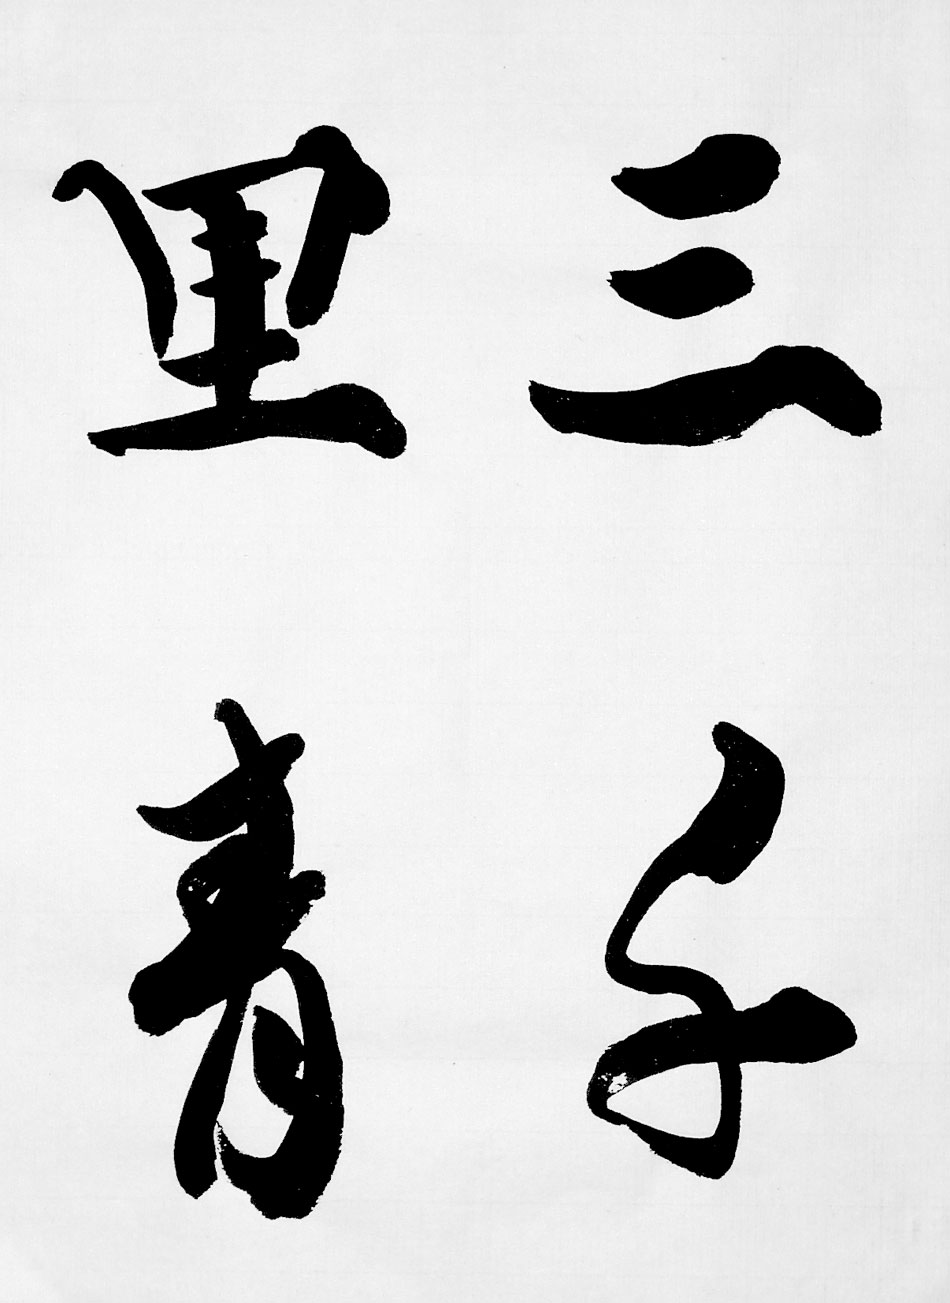 三千
里青